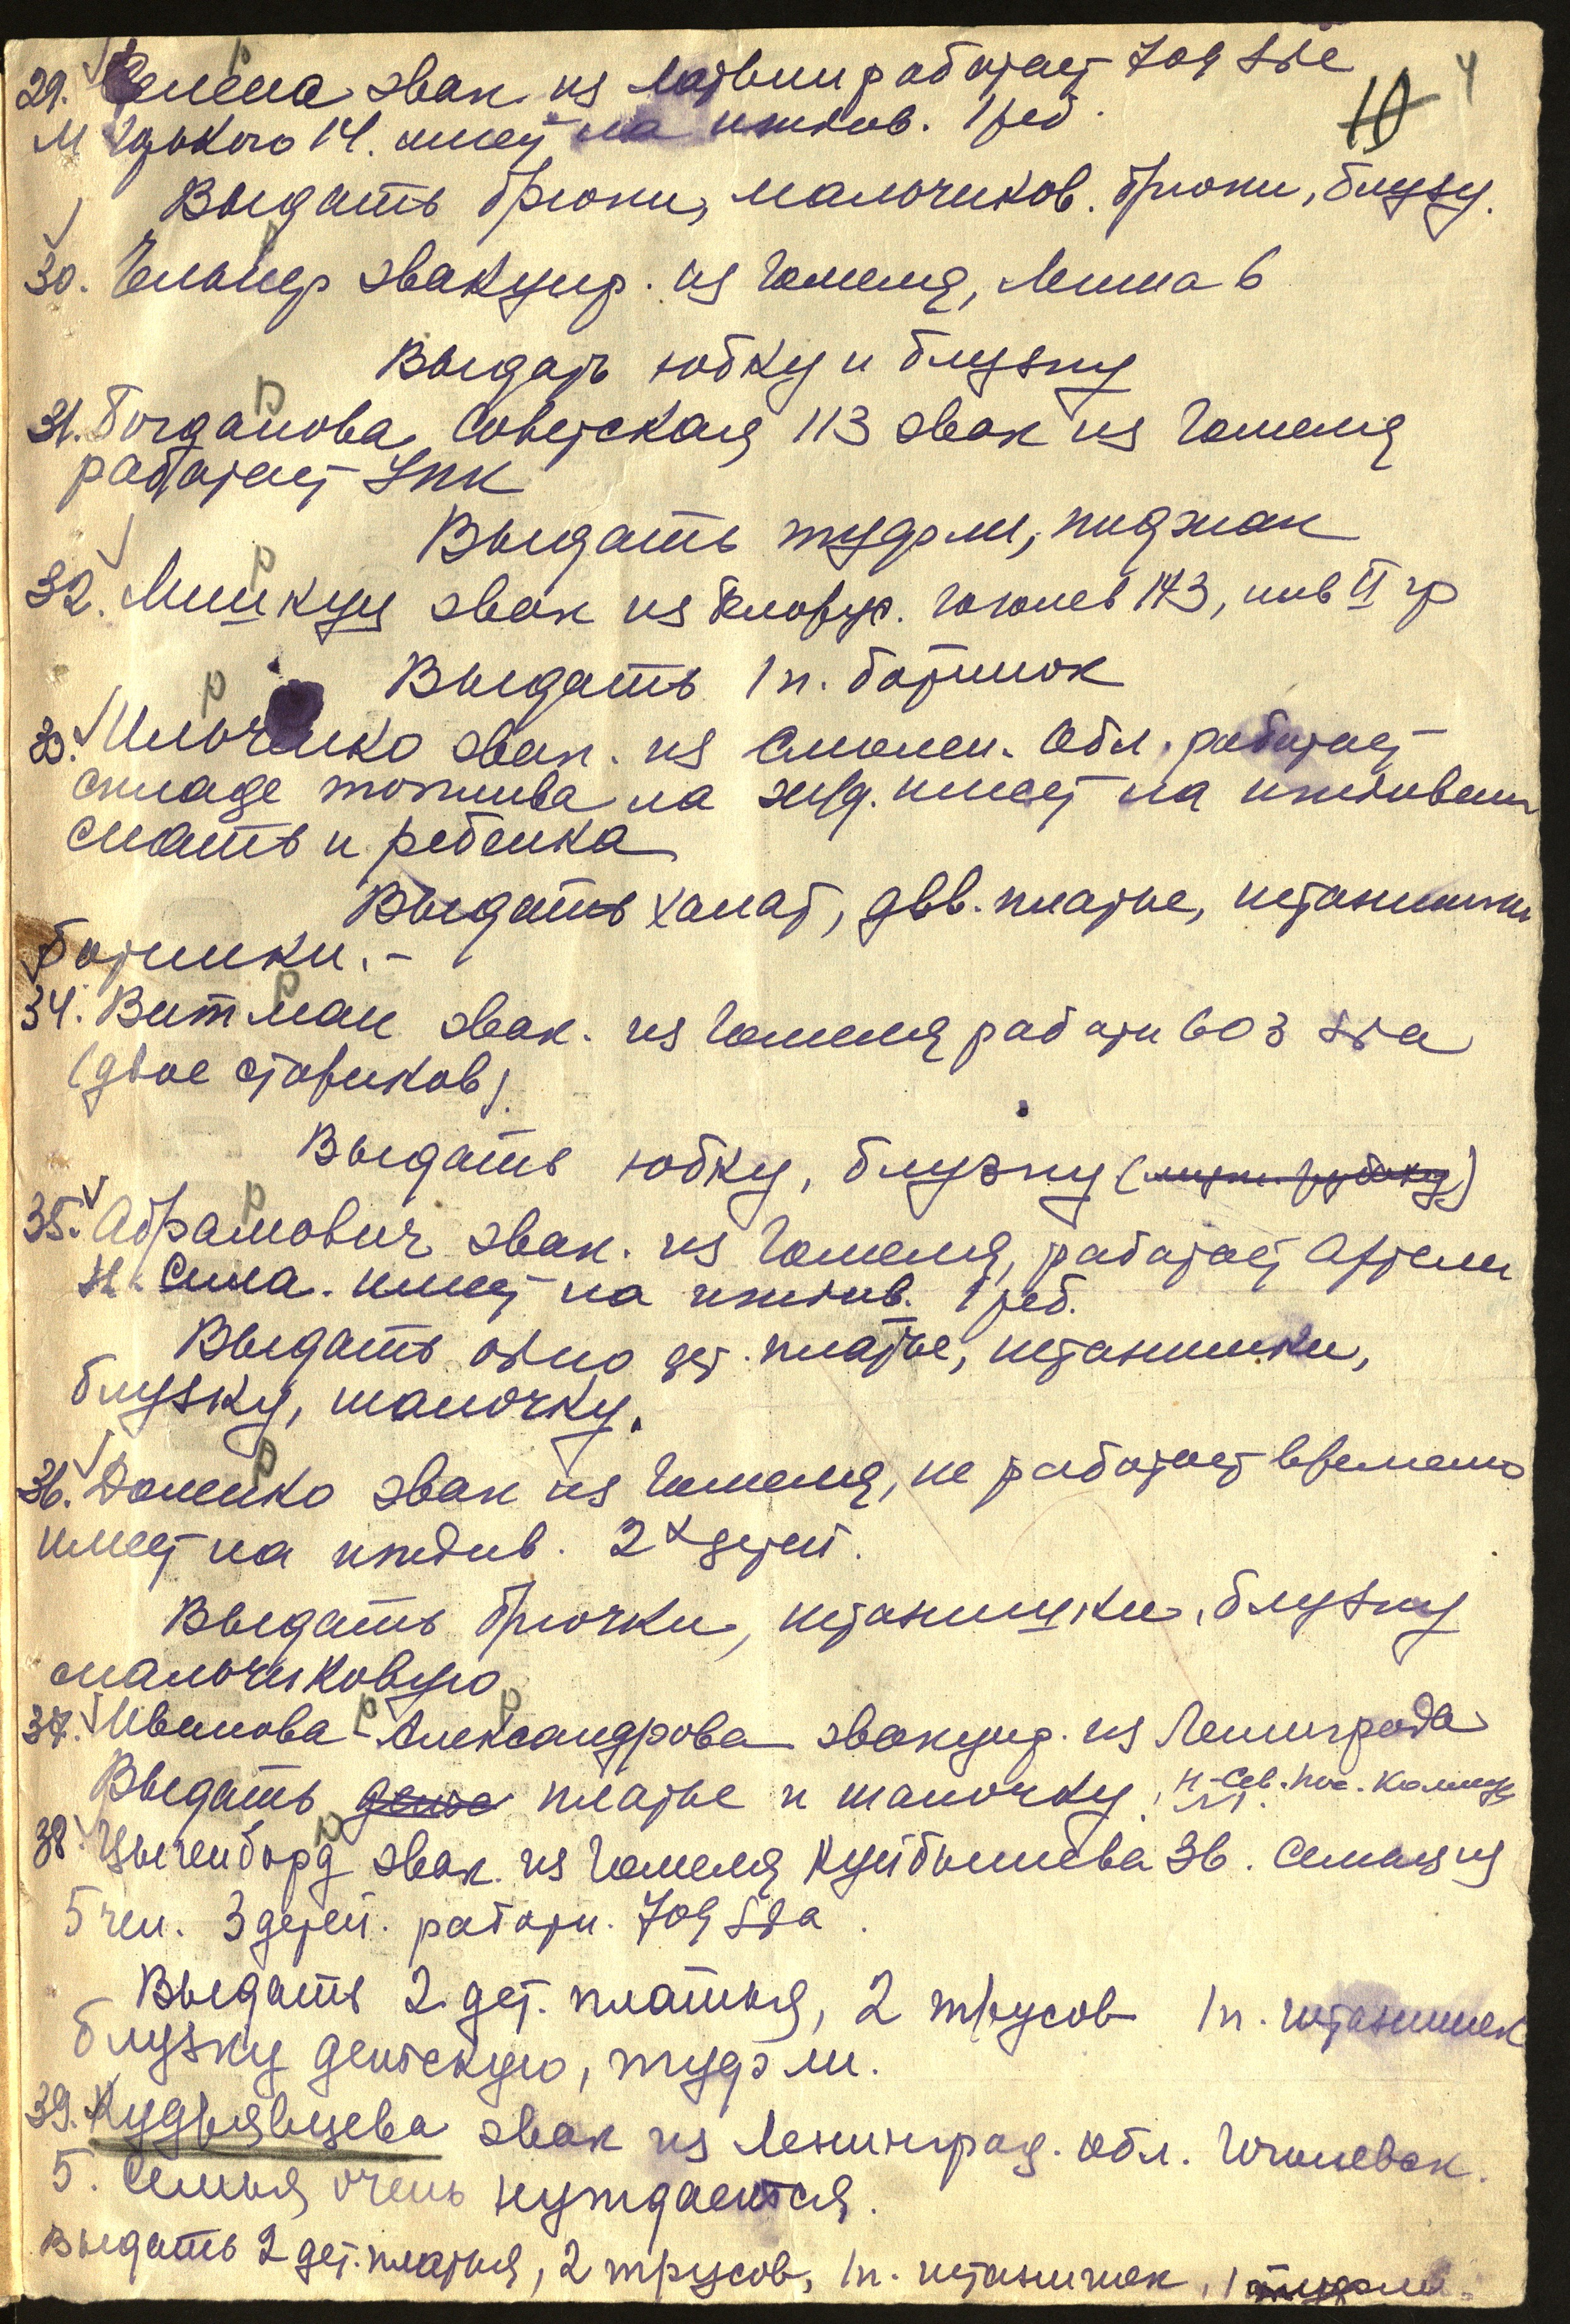 29. эвак. из Латвии работает 709
М Горького 14. имеет на иждив. 1 реб.
Выдать брюки, мальчиков. брюки, блузу.
30. эвакуир. из Гомеля, Ленина 6
Выдать юбку и блузку
31. Богданова Советская 113 эвак из Гомеля
работает УПК
Выдать туфли, пиджак
32. эвак из Белорус. Гоголев 143, инв II гр
Выдать 1 п. ботинок
33. Ильченко эвак. из Смолен. обл. работает
складе топлива на ж/д. имеет на иждивении
мать и ребенка
Выдать халат, дев. платье, штанишки
ботинки.-
34. Витман эвак. из Гомеля работ 603
(двое стариков)
Выдать юбку, блузку
35. Абрамович эвак. из Гомеля, работает артели
Н. Сила. имеет на иждив. 1 реб.
Выдать одно дет. платье, штанишки,
блузку, шапочку.
36. Доленко эвак из Гомеля, не работает времено
имеет на иждив. 2х детей.
Выдать брючки, штанишки, блузку
мальчиковую
37. Иванова-Александрова эвакуир. из Ленинграда
Выдать платье и шапочку.
38. эвак. из Гомеля Куйбышева 36. Семья из
5 чел. 3 детей. работн. 709
Выдать 2 дет. платья, 2 трусов 1 п. штанишек
блузку детскую, туфли.
39. Кудрявцева эвак из Ленинград. обл. Гоголевск.
5. Семья очень нуждается.
Выдать 2 дет. платья, 2 трусов, 1 п. штанишек, 1 туфли.